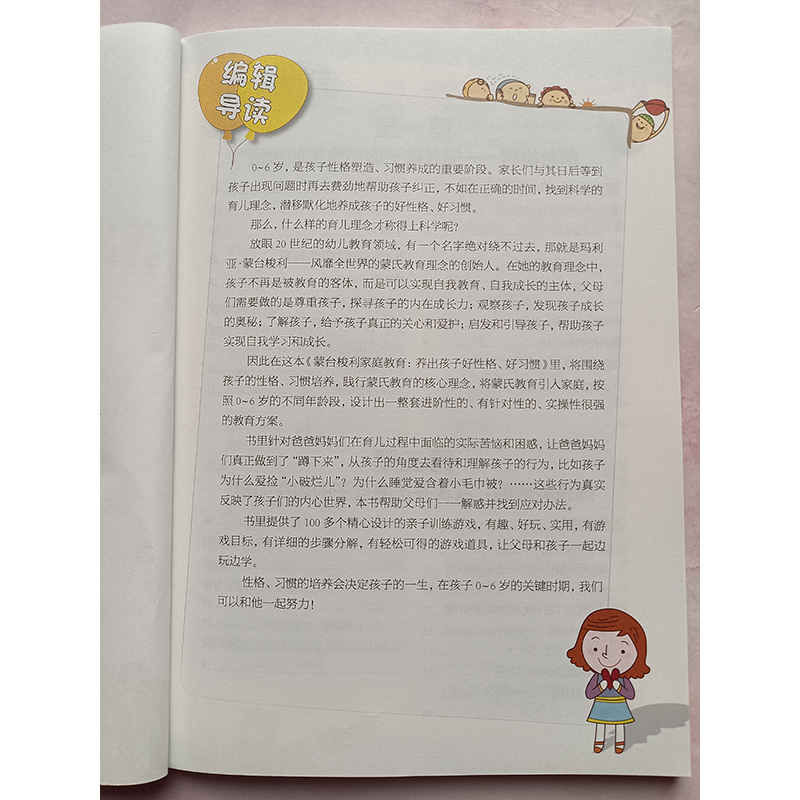 编辑
导读
0~6 岁，是孩子性格塑造、习惯养成的重要阶段。家长们与其日后等到
孩子出现问题时再去费劲地帮助孩子纠正，不如在正确的时间，找到科学的
育儿理念，潜移默化地养成孩子的好性格、好习惯。
那么，什么样的育儿理念才称得上科学呢？
放眼 20 世纪的幼儿教育领域，有一个名字绝对绕不过去，那就是玛利
亚·蒙台梭利——风靡全世界的蒙氏教育理念的创始人。在她的教育理念中，
孩子不再是被教育的客体，而是可以实现自我教育、自我成长的主体，父母
们需要做的是尊重孩子，探寻孩子的内在成长力；观察孩子，发现孩子成长
的奥秘；了解孩子，给予孩子真正的关心和爱护；启发和引导孩子，帮助孩子
实现自我学习和成长。
因此在这本《蒙台梭利家庭教育：养出孩子好性格、好习惯》里，将围绕
孩子的性格、习惯培养，践行蒙氏教育的核心理念，将蒙氏教育引入家庭，按
照 0~6 岁的不同年龄段，设计出一整套进阶性的、有针对性的、实操性很强
的教育方案。
书里针对爸爸妈妈们在育儿过程中面临的实际苦恼和困惑，让爸爸妈妈
们真正做到了“蹲下来”，从孩子的角度去看待和理解孩子的行为，比如孩子
为什么爱捡“小破烂儿”？为什么睡觉爱含着小毛巾被？……这些行为真实
反映了孩子们的内心世界，本书帮助父母们一一解惑并找到应对办法。
书里提供了 100 多个精心设计的亲子训练游戏，有趣、好玩、实用，有游
戏目标，有详细的步骤分解，有轻松可得的游戏道具，让父母和孩子一起边
玩边学。
性格、习惯的培养会决定孩子的一生，在孩子 0~6 岁的关键时期，我们
可以和他一起努力！